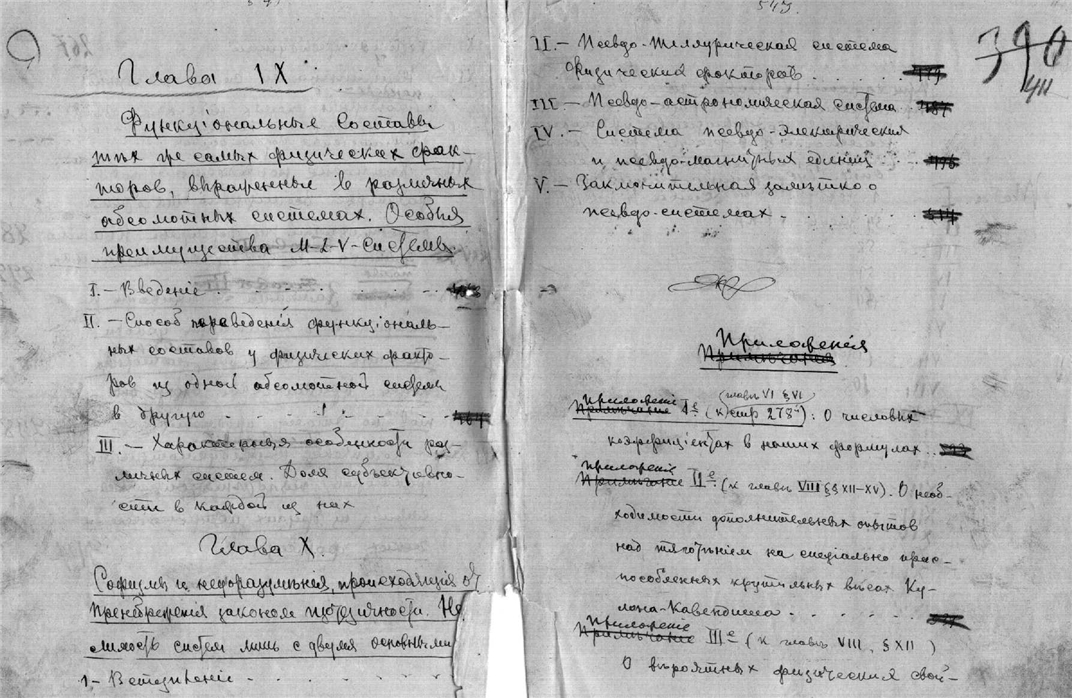 Глава IX
Функціональные составы
тѣх же самых физических фак-
торов, выраженные в различных
абсолютных системах. Особыя
преимущества M-L-V-системы.
I. – Введеніе
II. – Способ переведенія функціональ-
ных составов у физических факто-
ров из одной абсолютной системы
в другую
III. – Характерныя особенности раз-
личных систем. Доля субъективно-
сти в каждой из них
Глава X.
Софизмы и недоразумѣнія, происходящія от
пренебреженія законом
систем лишь с двумя основными
1 – Вступленіе
543.
390
II. – Псевдо-теллурическая система
физических факторов
III – Псевдо-астрономическая система
IV. – Система псевдо-электрических
и псевдо-магнитных единиц
V. – Заключительная замѣтка о
псевдо-системах
Приложенія
Примѣчанія
главы VI § VI
Приложеніе
Примѣчаніе I-е (к стр. 278): О числовых
коэффиціентах в наших формулах
Приложеніе
Примѣчаніе II-е (к главѣ VIII §§ XII–XV). О необ-
ходимости дополнительных опытов
над тяготѣніем на спеціально прис-
пособленных крутильных вѣсах Ку-
лона-Кавендиша
Приложеніе
Примѣчаніе III-е (к главѣ VIII, § XII)
О вѣроятных физических свой-